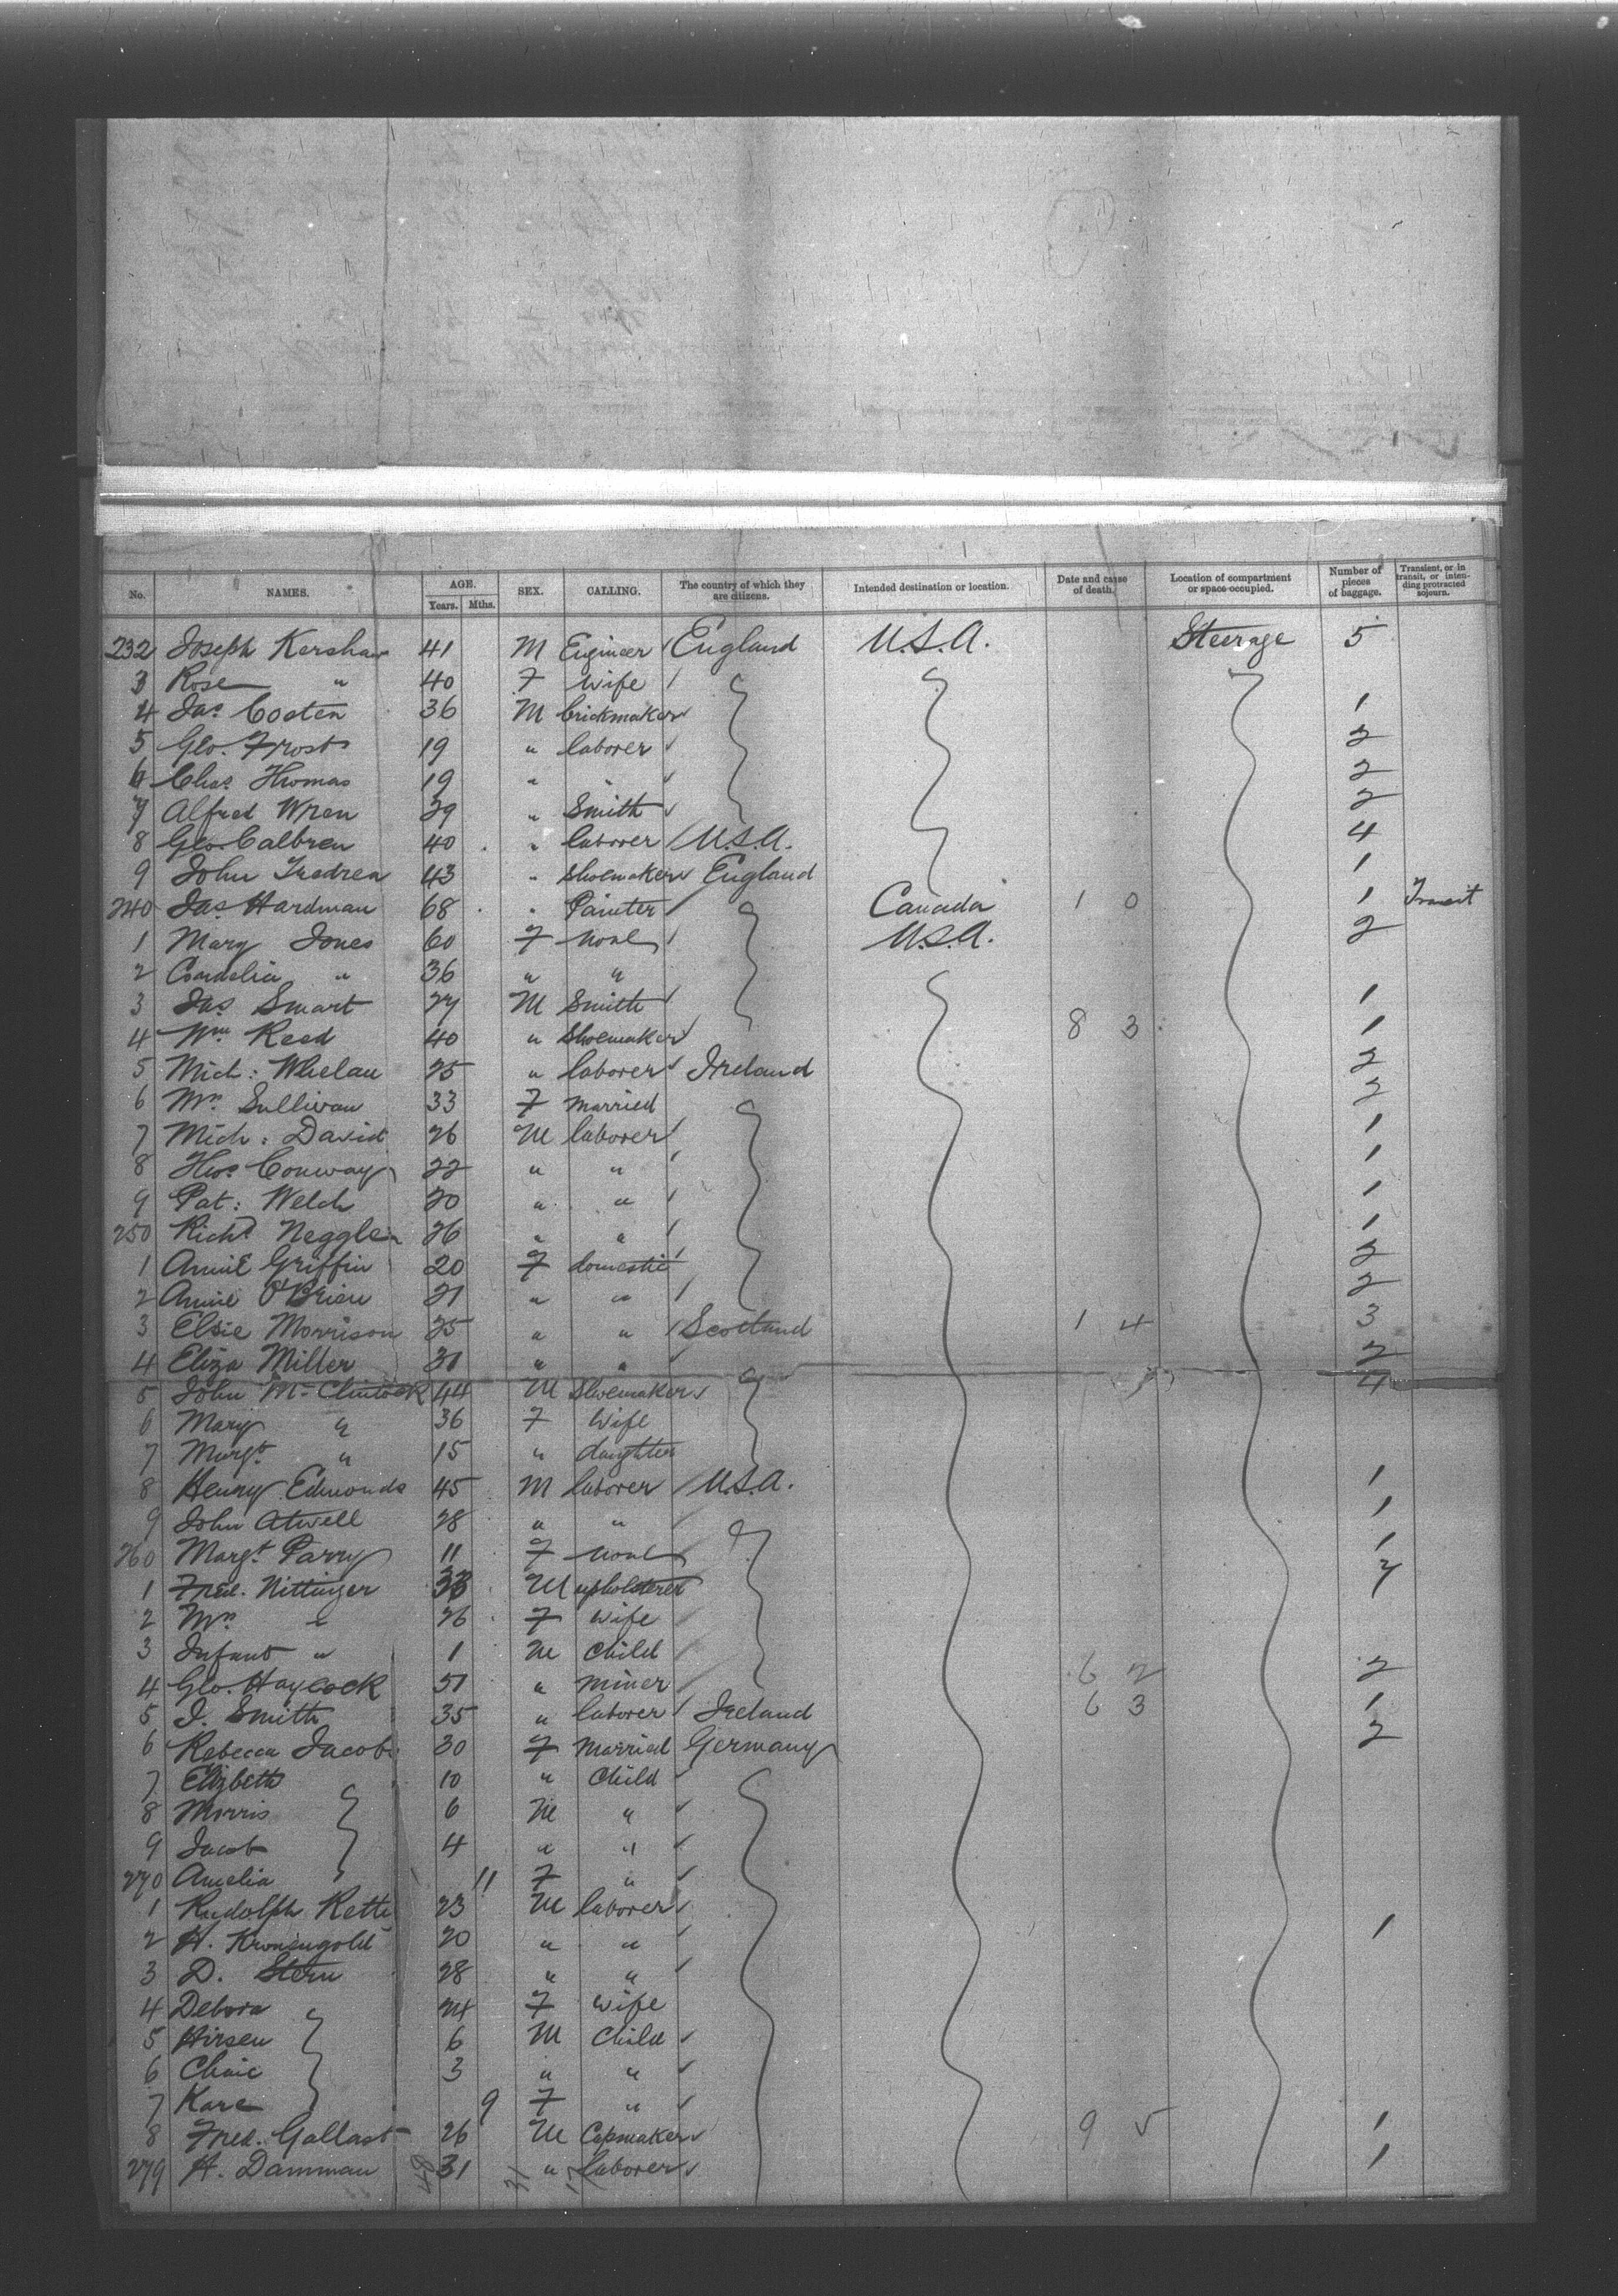 No. NAMES. AGE. Years. Mths. SEX. CALLING. The country of which they are citizens. Intended destination or location. Date and cause of death. Location of compartment or space occupied. Number of pieces of baggage. Transient, or in transit, or intending protracted sojourn.
232 Joseph Kershaw 41 M Engineer England U.S.A. Steerage 5
3 Rose " 40 F Wife
4 Jas Costen 36 M brickmaker 1
5 Geo. Frost 19 " laborer 2
6 Chas Thomas 19 " " 2
7 Alfred Wren 29 " Smith 2
8 Geo Calbren 40 " laborer U.S.A. 4
9 John Tredrea 43 " Shoemaker England 1
240 Jas Hardman 68 " Painter Canada 1 0 1 Transit
1 Mary Jones 60 F None U.S.A. 2
2 Cornelia " 36 " "
3 Jas Smart 27 M Smith 1
4 Wm Reed 40 " Shoemaker 8 3 1
5 Mich: Whelan 25 " laborer Ireland 2
6 Mrs Sullivan 33 F Married 2
7 Mich: David 26 M laborer 1
8 Thos Conway 22 " " 1
9 Pat: Welch 20 " " 1
250 Richd 26 " " 1
1 Annie Griffin 20 F domestic 2
2 Annie O'Brien 21 " " 2
3 Elsie Morrison 25 " " Scotland 1 4 3
4 Eliza Miller 31 " " 2
5 John McClintock 44 M Shoemaker 4
6 Mary " 36 F Wife
7 Margt " 15 " daughter
8 Henry Edmonds 45 M laborer U.S.A. 1
9 John Atwell 28 " " 1
260 Margt Parry 11 F None 1
1 Fred. Nittinger M upholsterer 7
2 Mrs " 26 F Wife
3 Infant " 1 M Child
4 Geo. Haycock 51 " Miner 6 2 2
5 J. Smith 35 " laborer Ireland 6 3 1
6 Rebecca Jacobs 30 F Married Germany 2
7 Elizbeth 10 " Child
8 Morris 6 M "
9 Jacob 4 " "
270 Amelia 11 F "
1 Rudolph Kette 23 M laborer
2 H. Kronengold 20 " " 1
3 D. Stern 28 " "
4 Debora " 24 F Wife
5 Hirsen 6 M Child
6 Chaie 3 " "
7 Kare 9 F "
8 Fred. Gallast 26 M Capmaker 9 5 1
279 H. Damman 31 " laborer 1